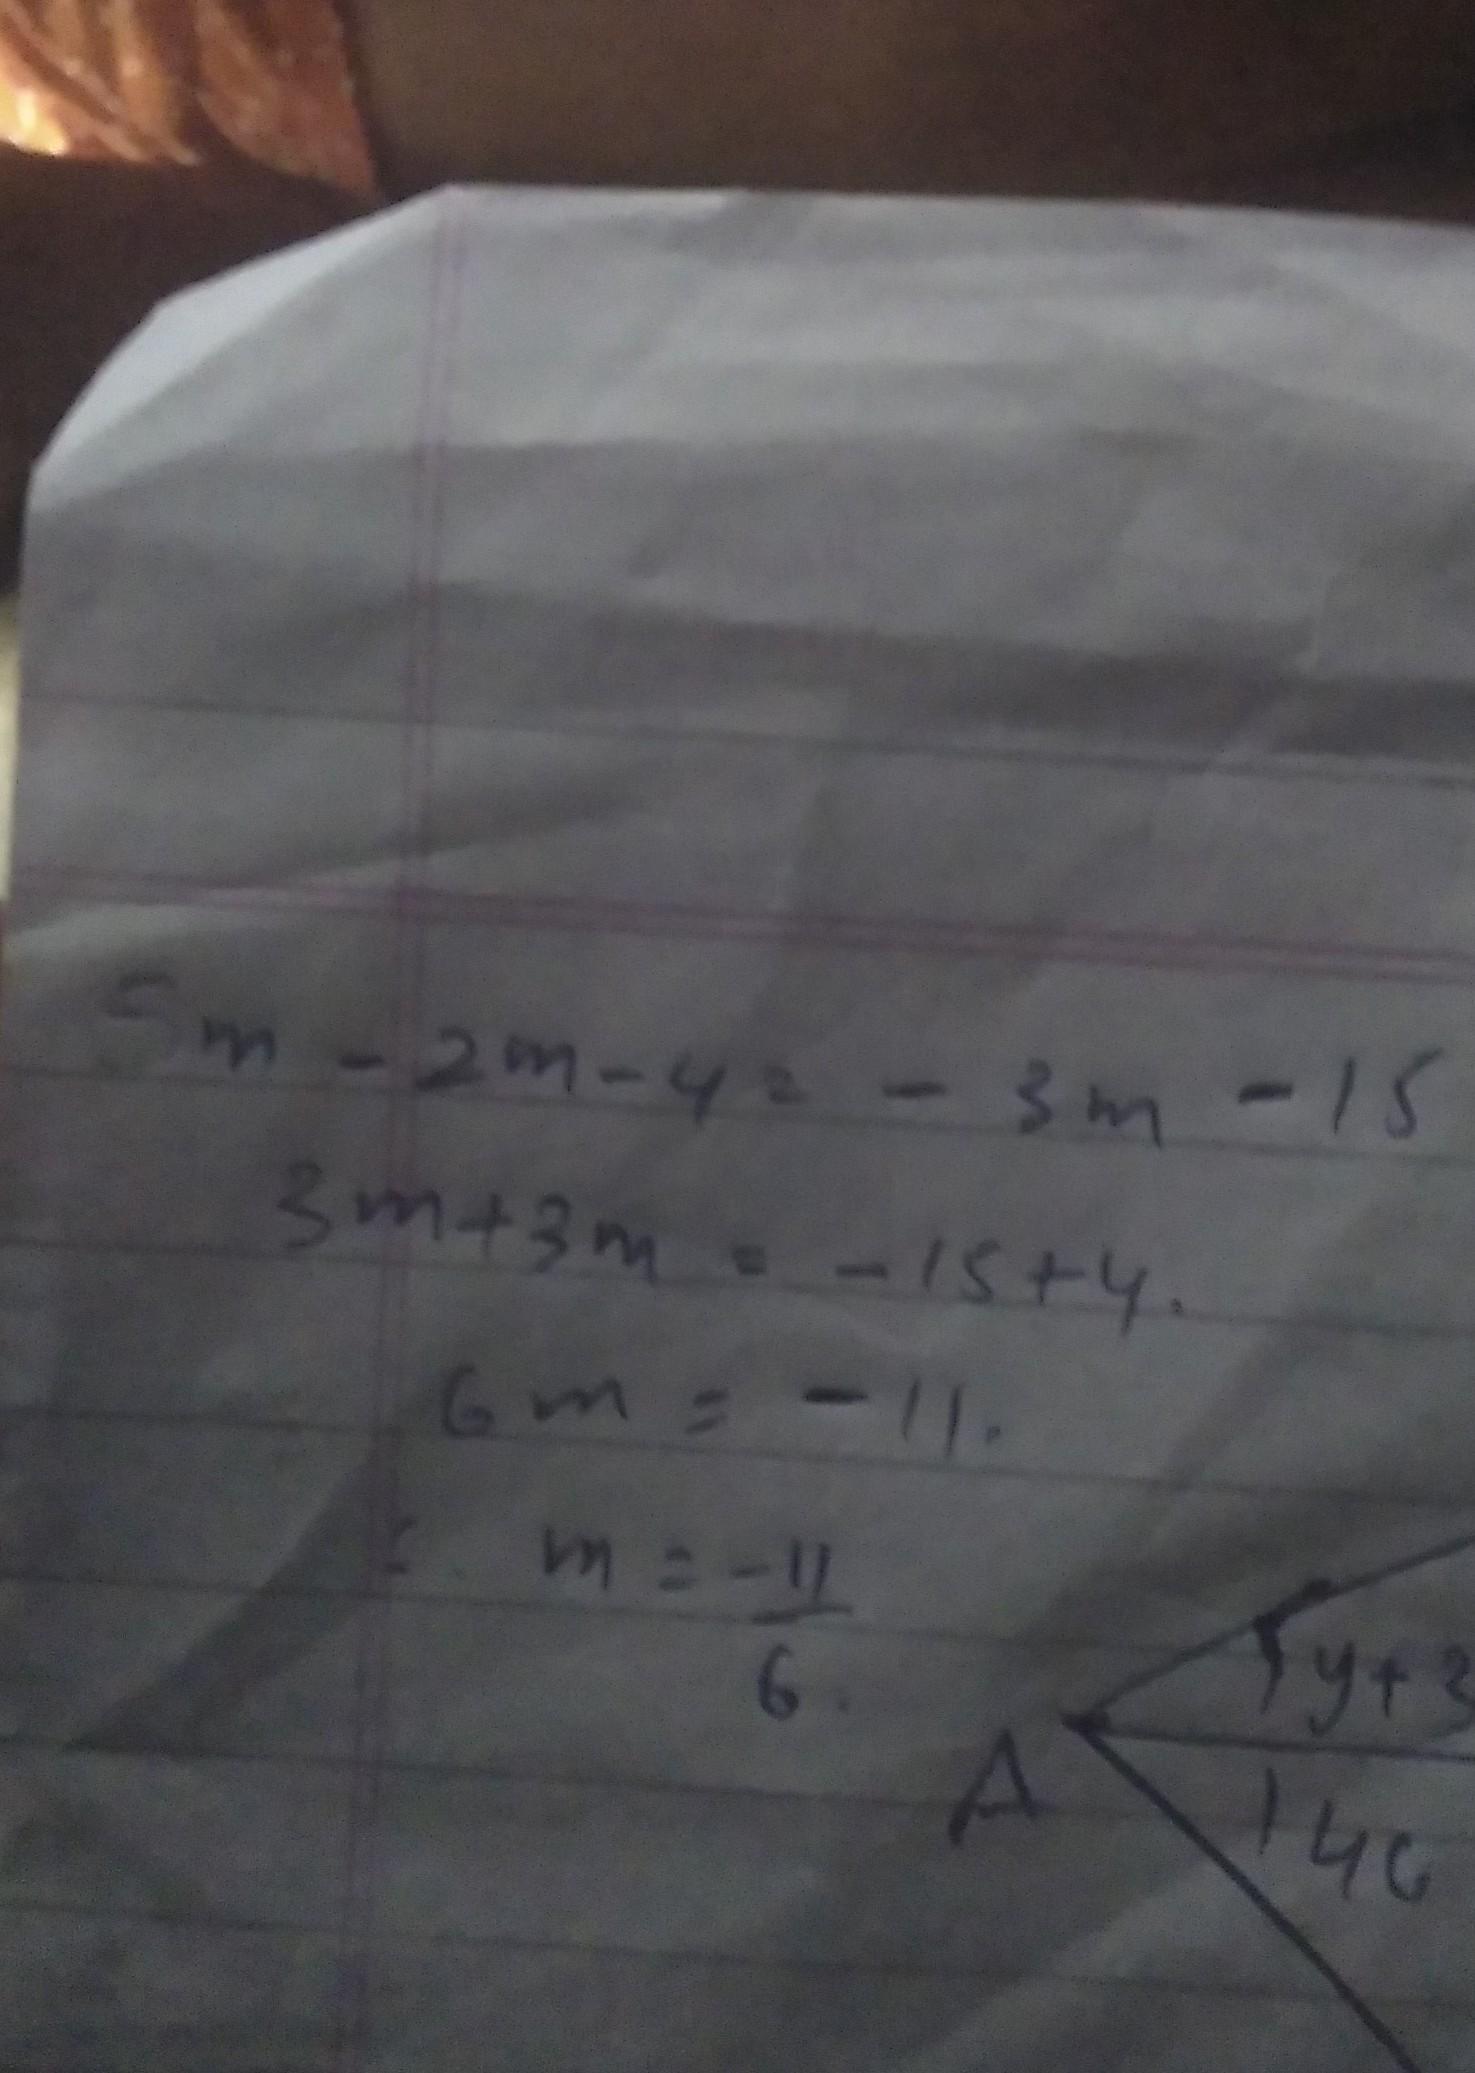 5m - 2m - 4 = - 3m - 15
3m + 3m = - 15 + 4.
6m = - 11.
∴ m = -11/6.
y+3
A
140